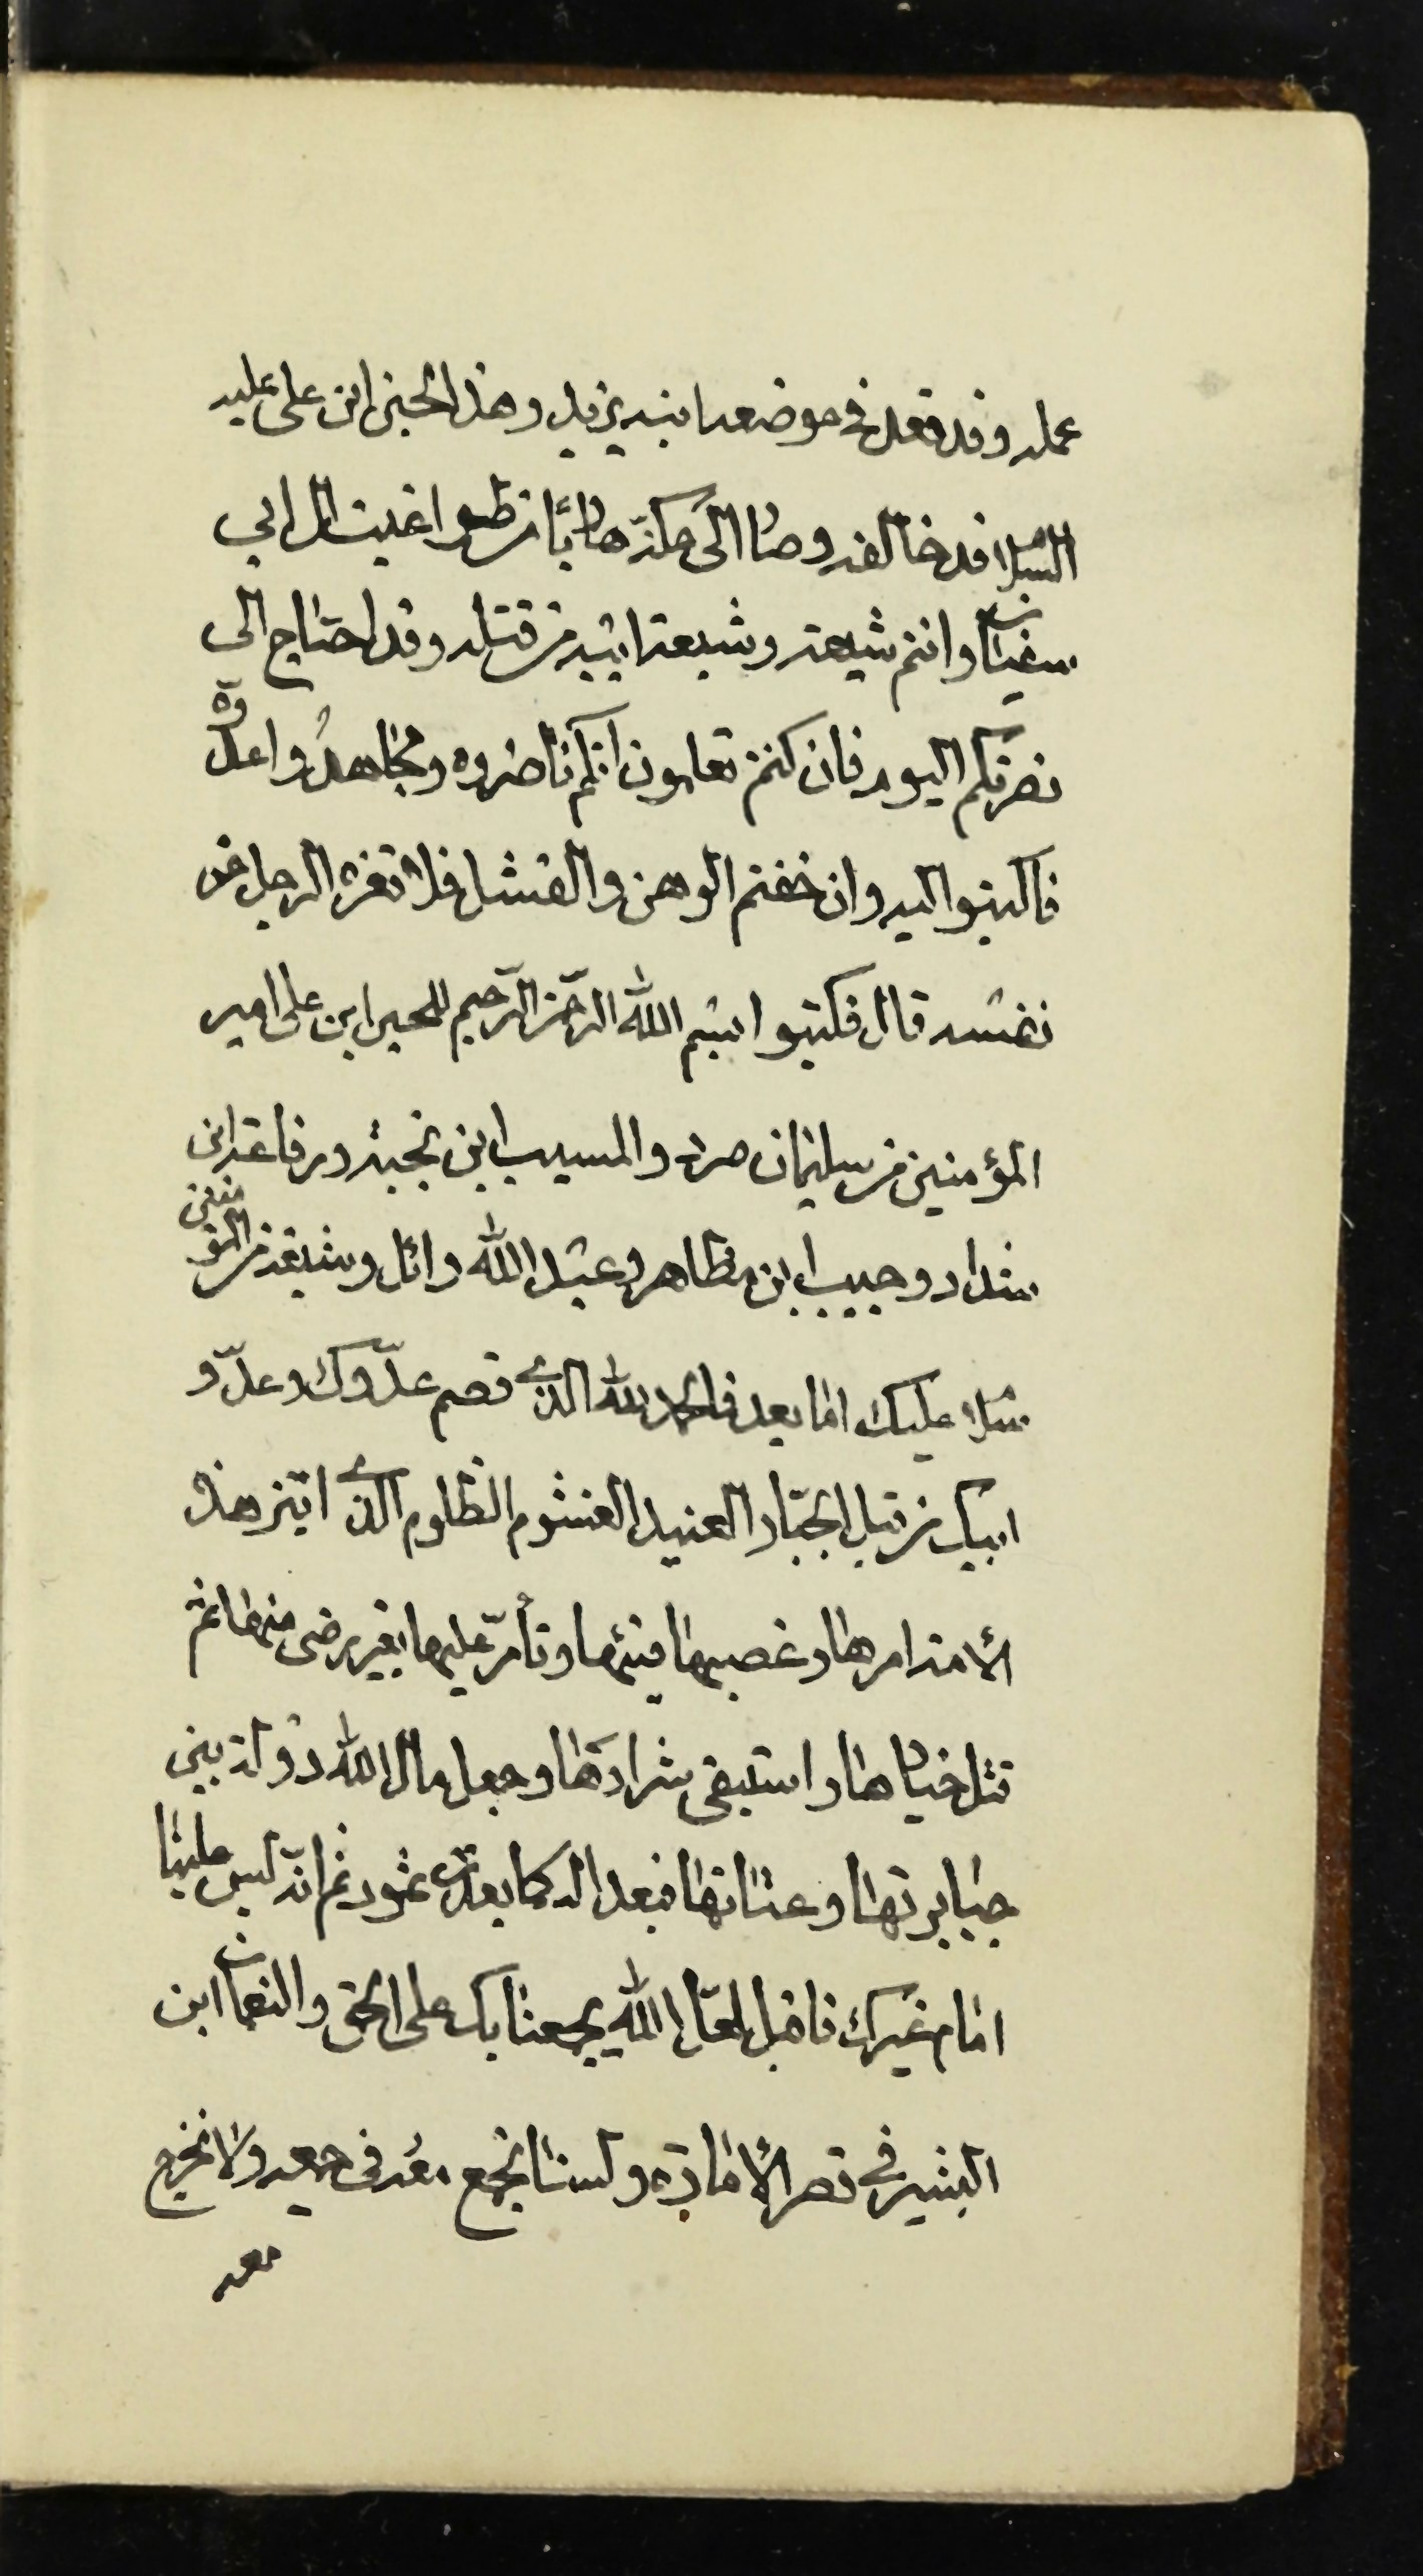 عمله وقد قعد في موضعه ابنه يزيد وهذا الحسين ابن علي عليه
السلام قد خالفه وصار الى مكة هاربًا من طواغيت ال ابي
سفيان وانتم شيعته وشيعة ابيه من قبله وقد احتاج الى
نصرتكم اليوم فان كنتم تعلمون انكم ناصروه ومجاهدوا عدوّه
فاكتبوا اليه وان خفتم الوهن والفشل فلا تغروا الرجل من
نفسه قال فكتبوا بسم الله الرّحمن الرّحيم للحسين ابن علي امير
المؤمنين من سليمان صرد والمسيب ابن نجبة ورفاعة ابن
شداد وحبيب ابن مظاهر وعبد الله وائل وشيعته من المؤمنين
سلام عليك امّا بعد فالحمد لله الذي قصم عدّوك وعدّو
ابيك من قبل الجبّار العنيد الغشوم الظلوم الذي ابتز هذه
الأمة امرها وغصبها فيئها وتأمّر عليها بغير رضى منها ثم
قتل خيارها واستبقى شرارها وجعل مال الله دولة بين
جبابرتها وعتاتها فبعدا له كما بعدت ثمود ثم انّه ليس علينا
امام غيرك فاقبل لعلّ الله يجمعنا بك على الحق والنعمان ابن
البشير في قصر الأمارة ولسنا نجمع معه في جمعه ولا نخرج
معه